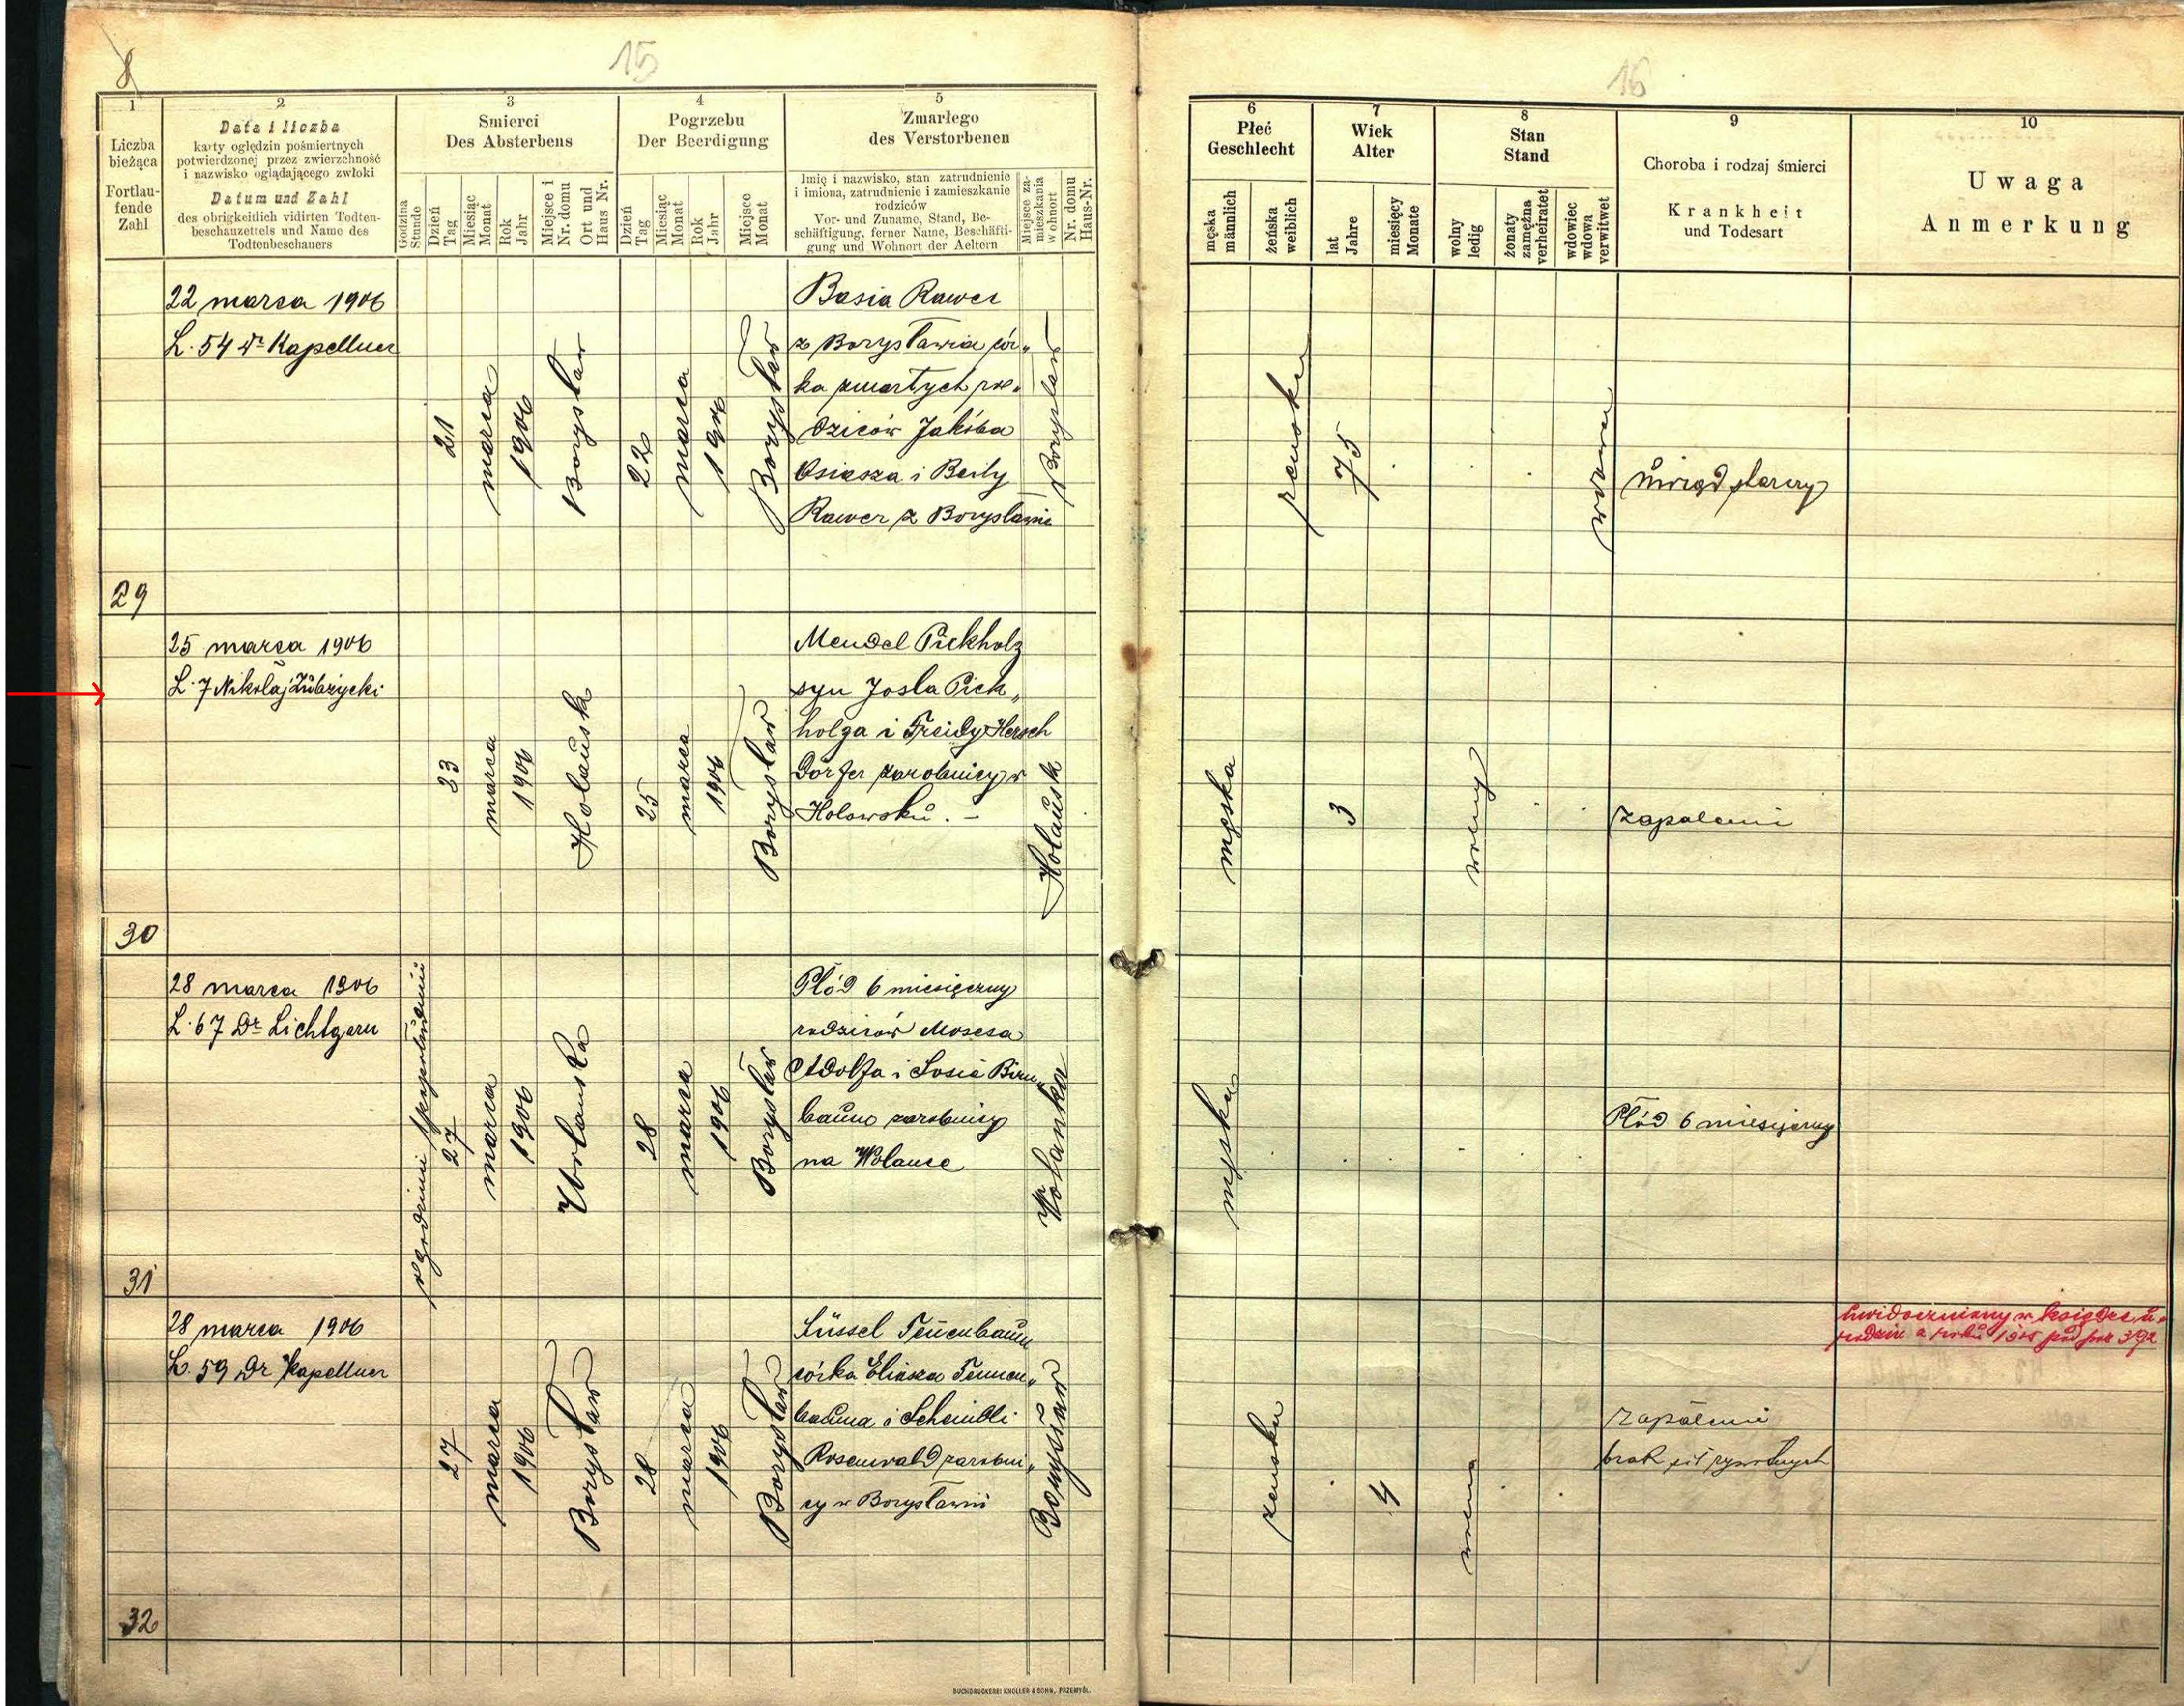 8
15
16
1
Liczba
bieżąca
Fortlau-
fende
Zahl
2
Data i liczba
karty oględzin pośmiertnych
potwierdzonej przez zwierzchność
i nazwisko oglądającego zwłoki
Datum und Zahl
des obrigkeitlich vidirten Todten-
beschauzettels und Name des
Todtenbeschauers
3
Smierci
Des Absterbens
Godzina
Stunde
Dzień
Tag
Miesiąc
Monat
Rok
Jahr
Miejsce i
Nr. domu
Ort und
Haus Nr.
4
Pogrzebu
Der Beerdigung
Dzień
Tag
Miesiąc
Monat
Rok
Jahr
Miejsce
Monat
5
Zmarłego
des Verstorbenen
Imię i nazwisko, stan zatrudnienie
i imiona, zatrudnienie i zamieszkanie
rodziców
Vor- und Zuname, Stand, Be-
schäftigung, ferner Name, Beschäfti-
gung und Wohnort der Aeltern
Miejsce za-
mieszkania
Wohnort
Nr. domu
Haus-Nr.
6
Płeć
Geschlecht
męska
männlich
żeńska
weiblich
7
Wiek
Alter
lat
Jahre
miesięcy
Monate
8
Stan
Stand
wolny
ledig
żonaty
zamężna
verheiratet
wdowiec
wdowa
verwitwet
9
Choroba i rodzaj śmierci
Krankheit
und Todesart
10
Uwaga
Anmerkung
29
22 marca 1906
L. 54 Dr Kapellner
21
marca
1906
Borysław
22
marca
1906
Borysław
Basia Rawer
z Borysławia cór„
ka zmarłych ro„
dziców Jakóba
Osiasza i Beily
Rawer z Borysławia
Borysław
żenska
75
wdowa
uwiąd starczy
30
25 marca 1906
L. 7 Nikolaj Zubrzycki
23
marca
1906
Holausk
25
marca
1906
Borysław
Mendel Pickholz
syn Josla Pick„
holza i Freidy Hersch
Dörfer zarobnicy w
Holowsku. –
Holausk
męska
3
wolny
zapalenie
31
28 marca 1906
L. 67 Dr Lichtgarn
27
marca
1906
Wolanka
28
marca
1906
Borysław
Płód 6 miesięczny
rodziców Mosesa
Adolfa i Sosie Birn„
baum zarobnicy
na Wolance
Wolanka
męska
Płód 6 miesięczny
32
28 marca 1906
L. 59 Dr Kapellner
27
marca
1906
Borysław
28
marca
1906
Borysław
Süssel Tennenbaum
córka Eliasza Tennen„
bauma i Scheindli
Rosenwald zarobni„
cy w Borysławiu
Borysław
żenska
4
wolna
zapalenie
brak sił żywotnych
Uwidoczniony w księdze u„
rodzin z roku 1905 pod poz 392
BUCHDRUCKEREI KNOLLER & SOHN, PRZEMYŚL.